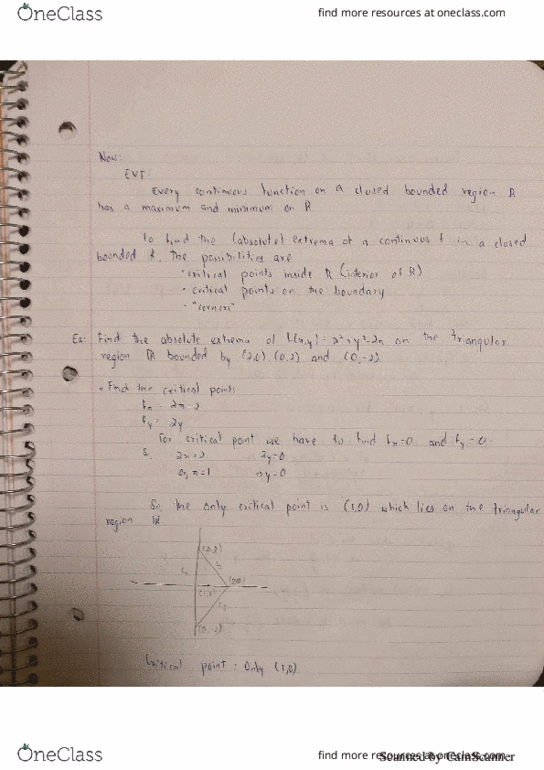 OneClass
find more resources at oneclass.com
Now
EVT:
Every continuous function on a closed bounded region R
has a maximum and minimum on R
To find the (absolute) extrema of a continuous f in a closed
bounded R, the possibilities are
• critical points inside R (interior of R)
• critical points on the boundary
• "corners"
Ex: Find the absolute extrema of f(x,y) = x²+y²-2x on the triangular
region R bounded by (2,0), (0,2) and (0,-2)
• Find the critical points
fx = 2x-2
fy = 2y
For critical point we have to find fx=0 and fy=0
So 2x=2 2y=0
x=1 y=0
So, the only critical point is (1,0) which lies on the triangular
region R
(0,2)
(2,0)
(1,0)
(0,-2)
Critical point: Only (1,0)
OneClass
find more resources at oneclass.com
Scanned by CamScanner